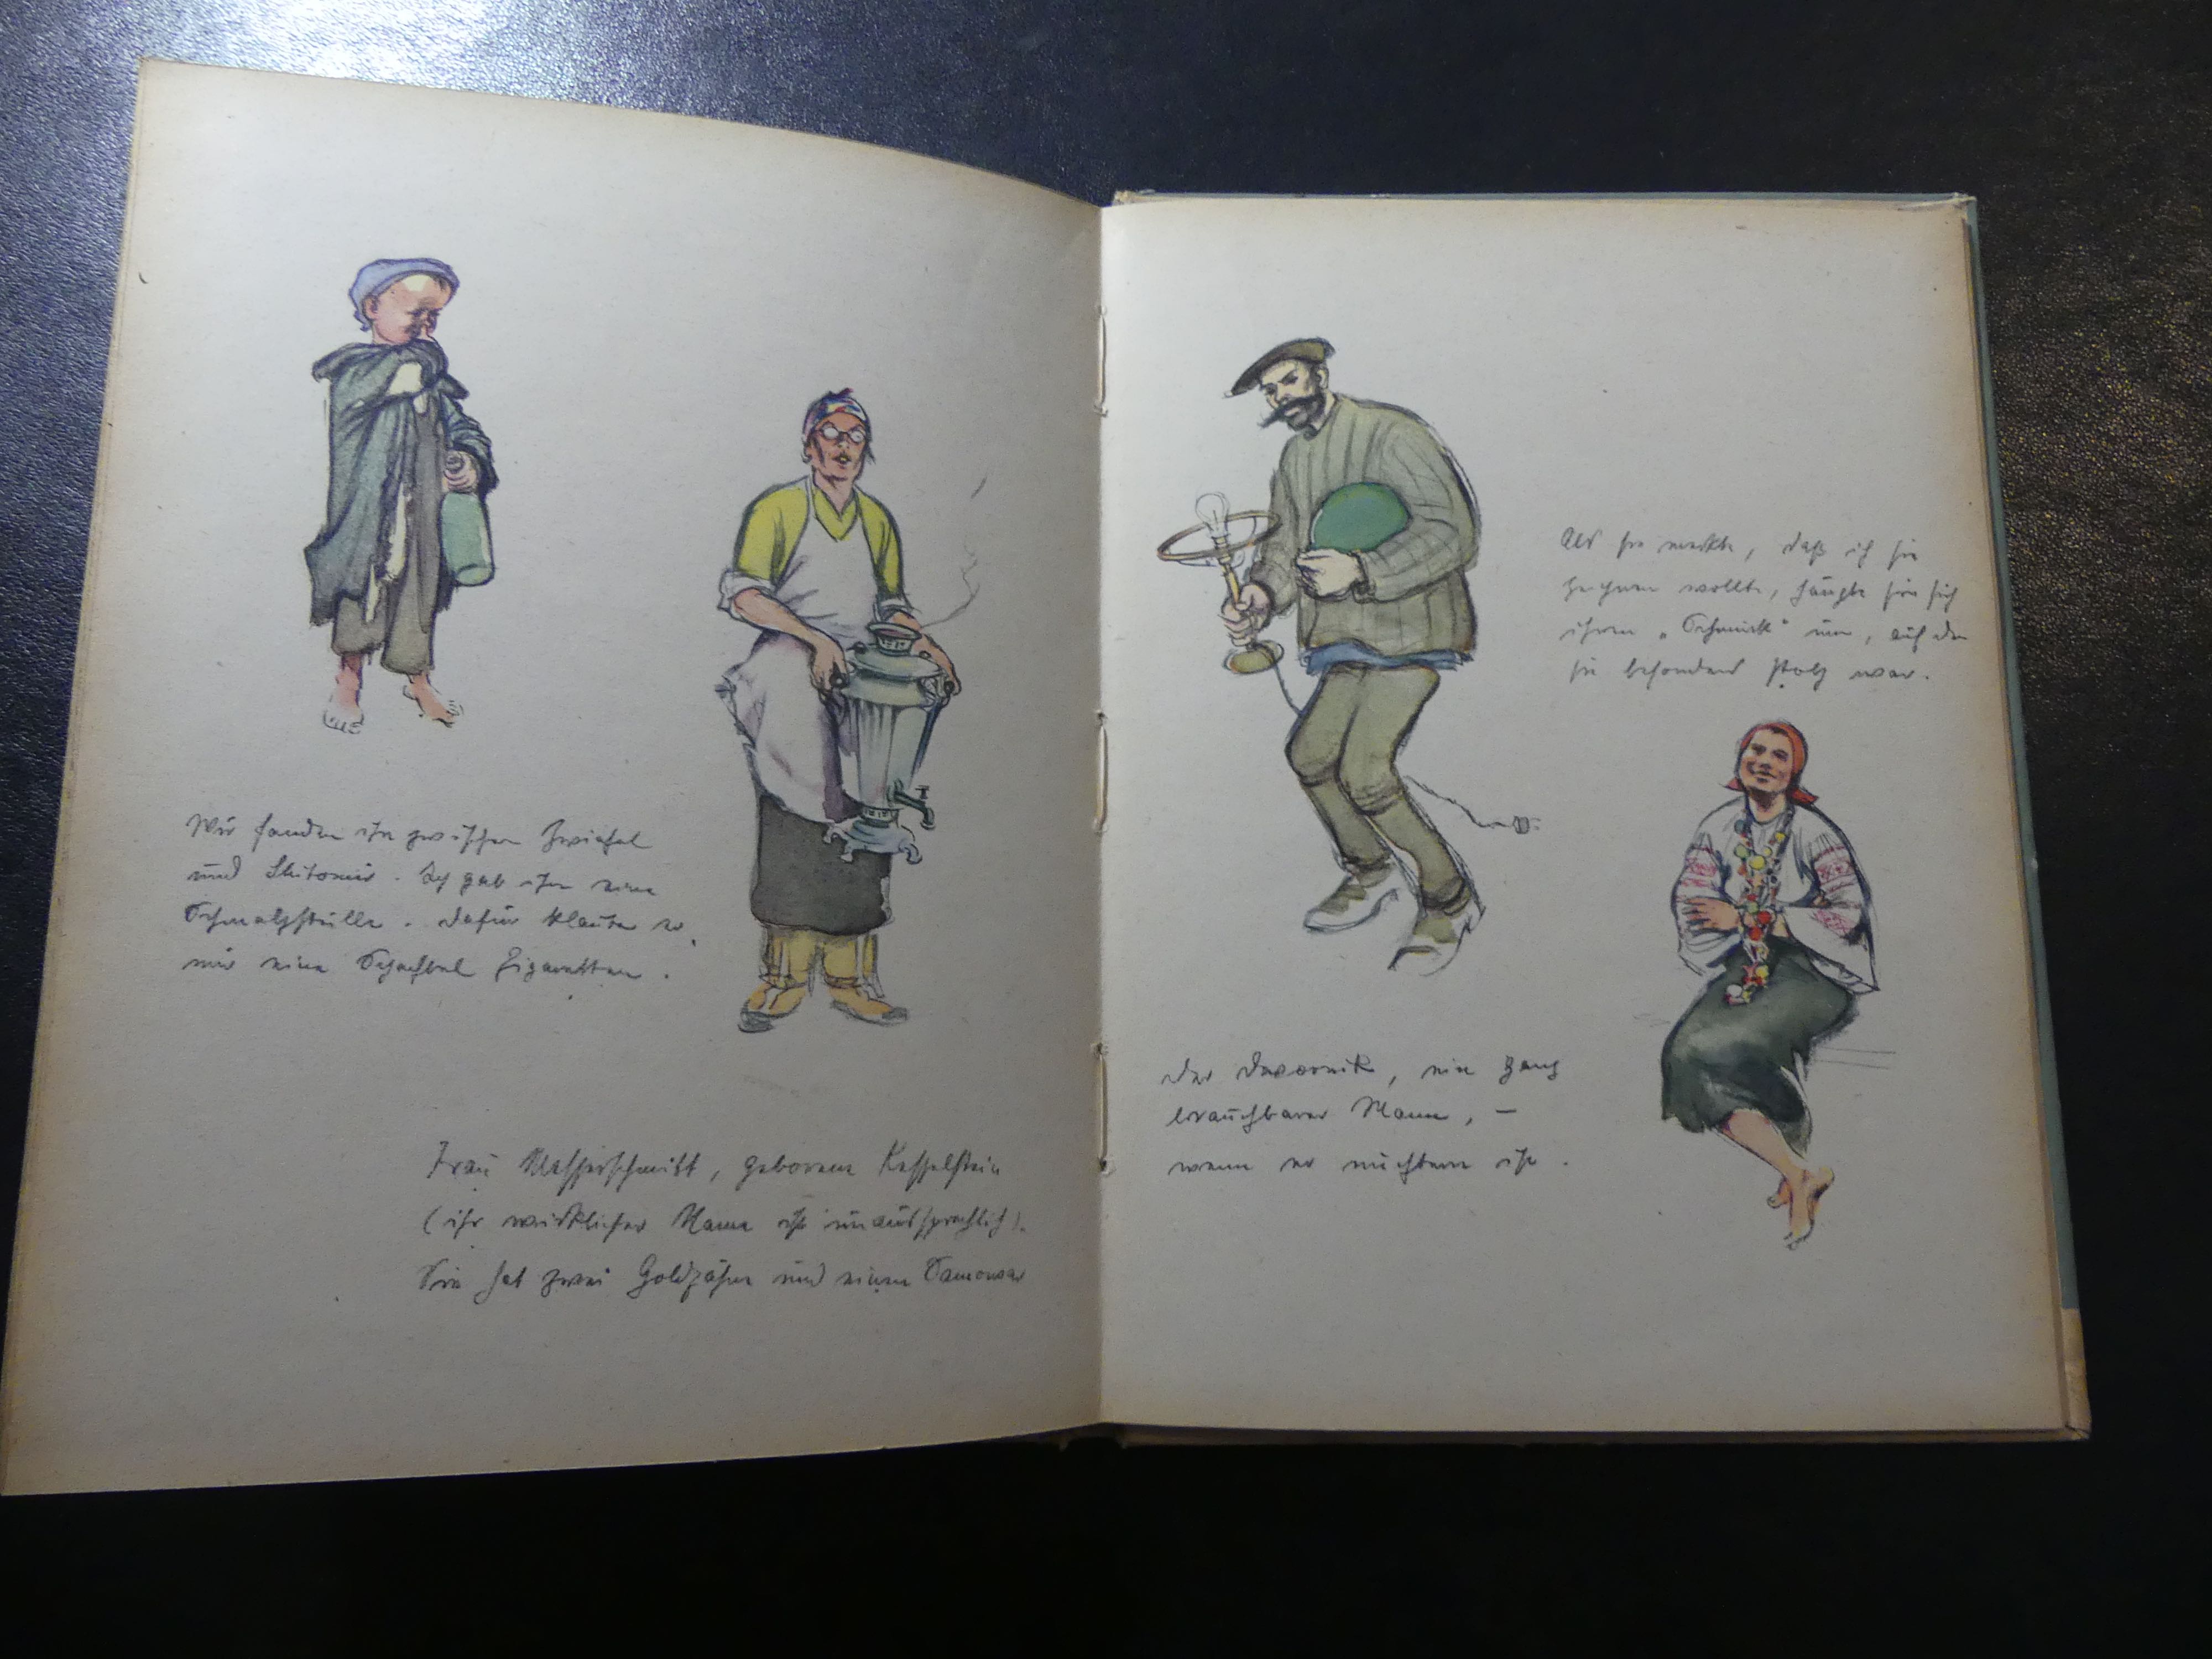 Wir fanden ihn zwischen Zwiahel
und Shitomir. Ich gab ihm eine
Schmalzstulle. Dafür klaute er
mir eine Schachtel Zigaretten.
Frau Messerschmitt, geborene Kesselstein
(ihr wirklicher Name ist unaussprechlich).
Sie hat zwei Goldzähne und einen Samowar
Als sie merkte, daß ich sie
zeichnen wollte, hängte sie sich
ihren „Schmuck" um, auf den
sie besonders stolz war.
Der Dwornik, ein ganz
brauchbarer Mann, –
wenn er nüchtern ist.